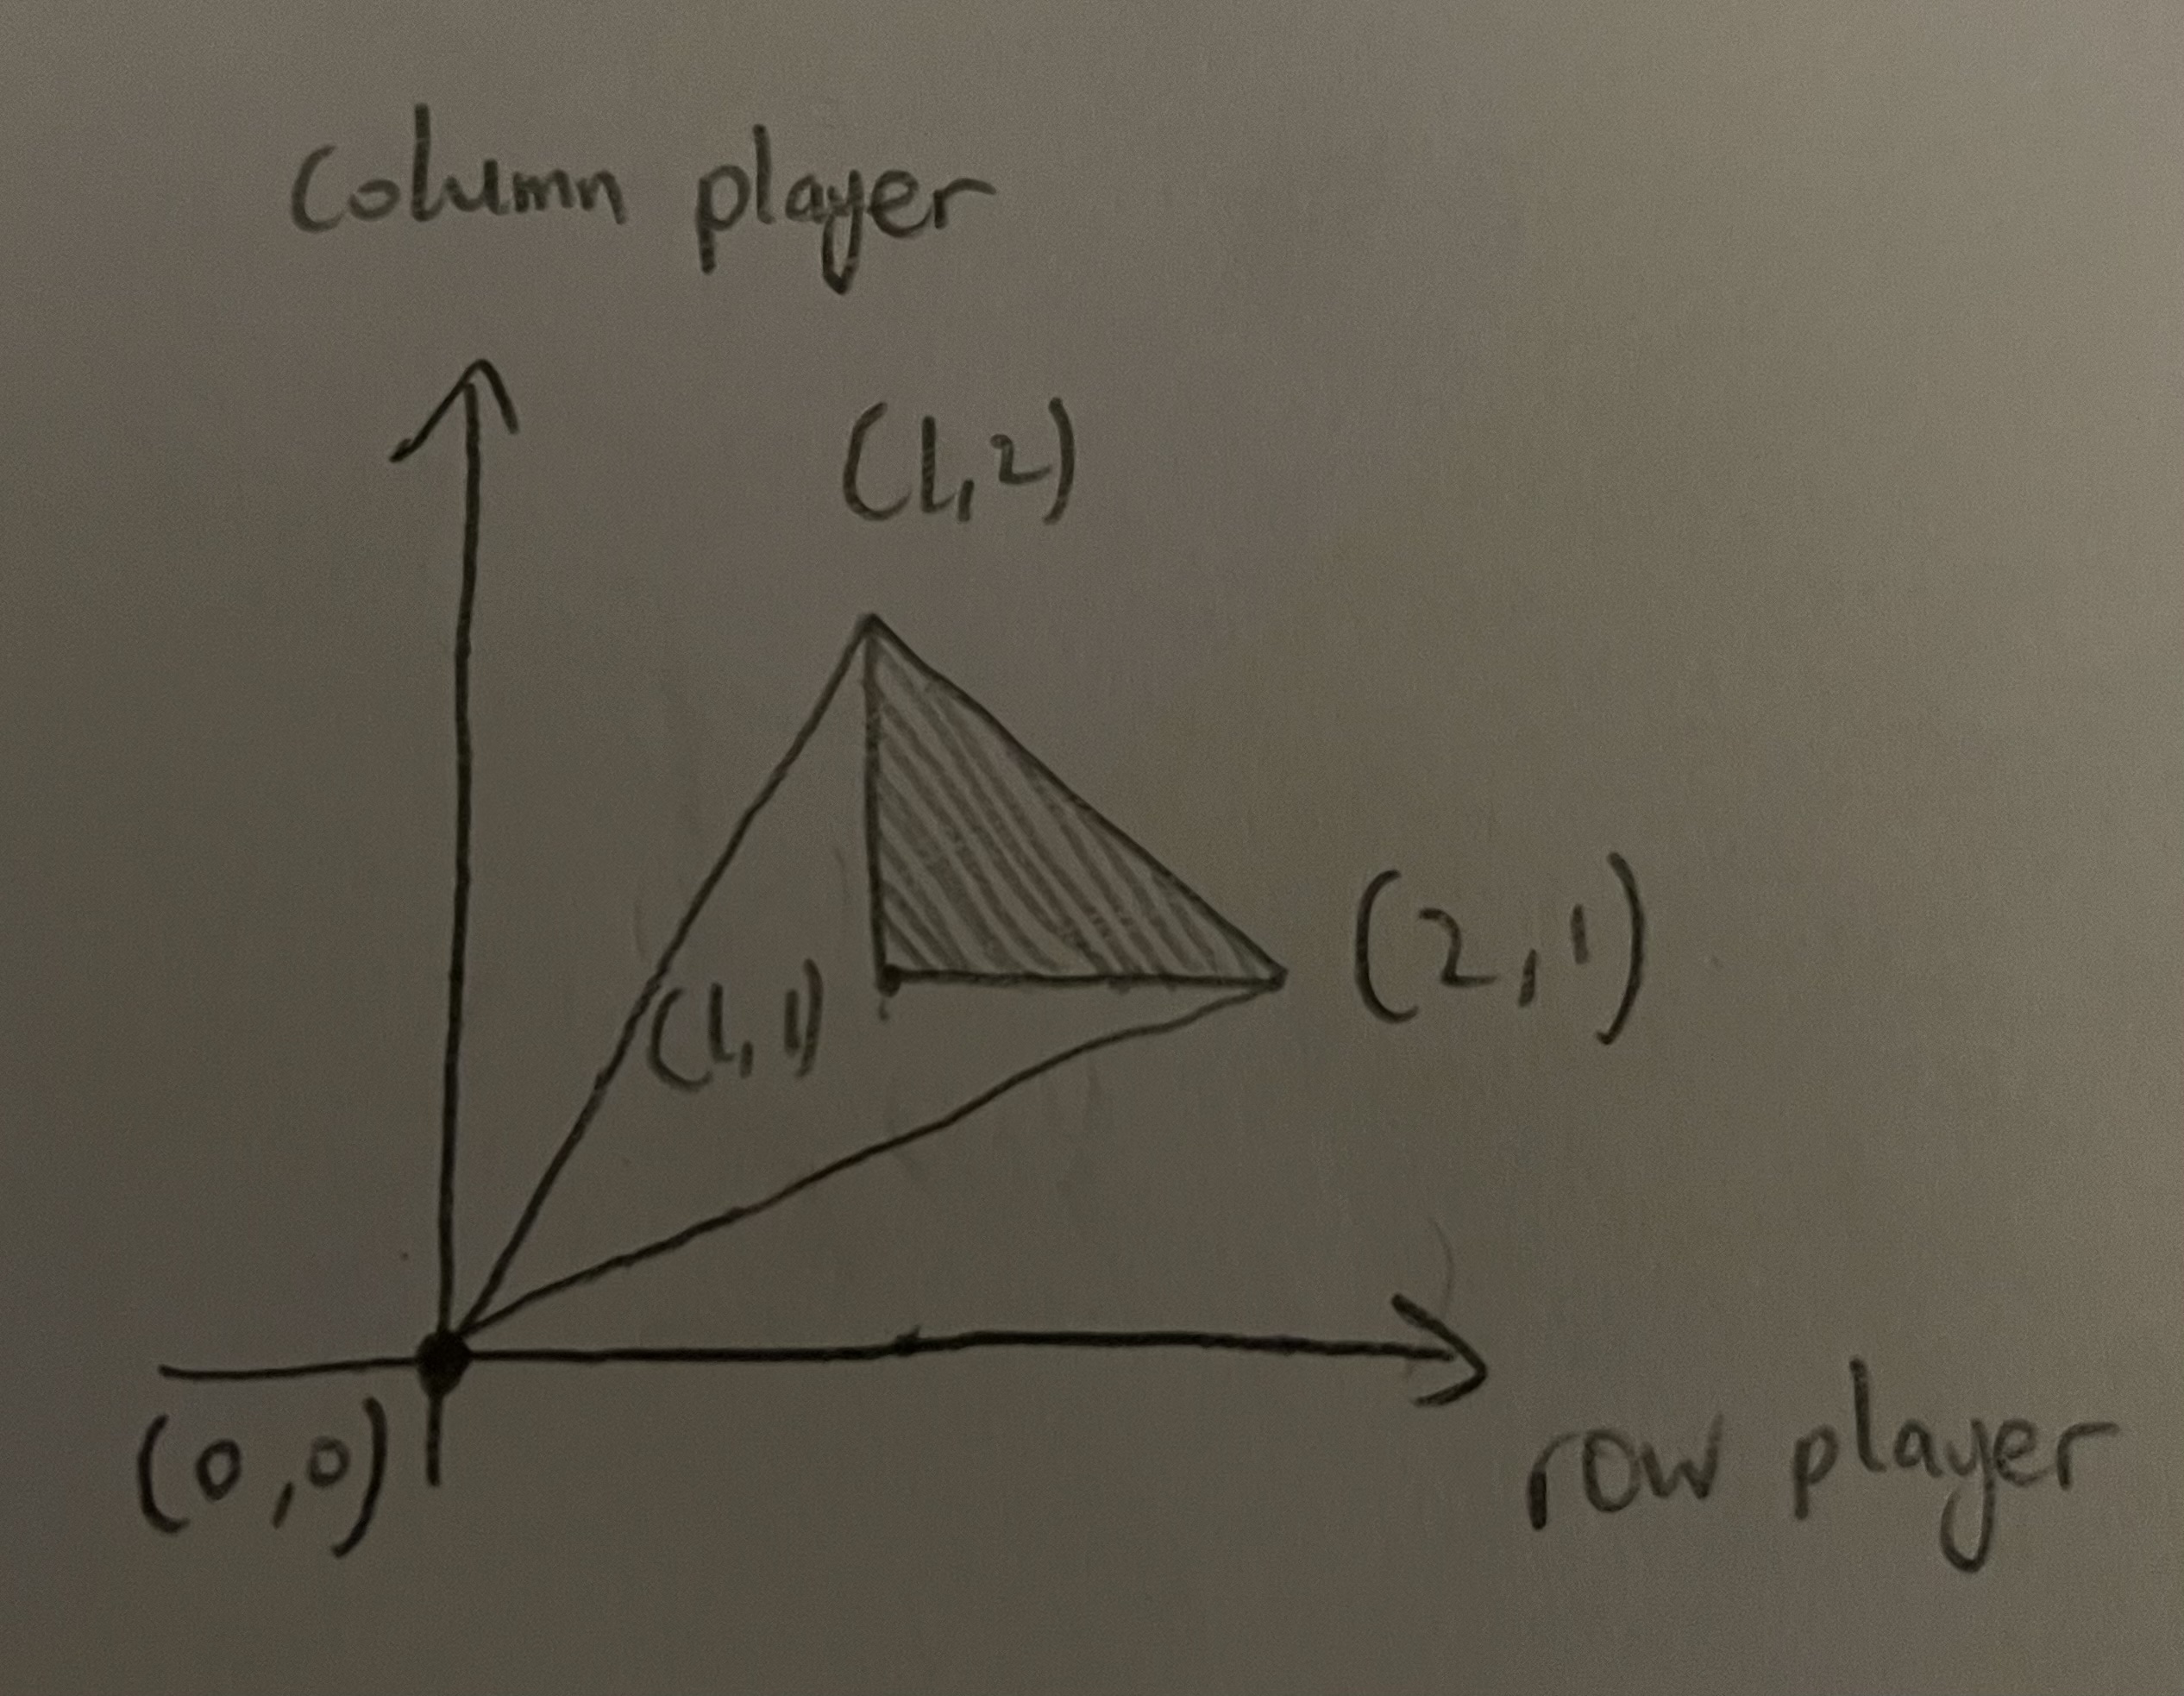 Column player
(1,2)
(2,1)
(1,1)
(0,0)
row player